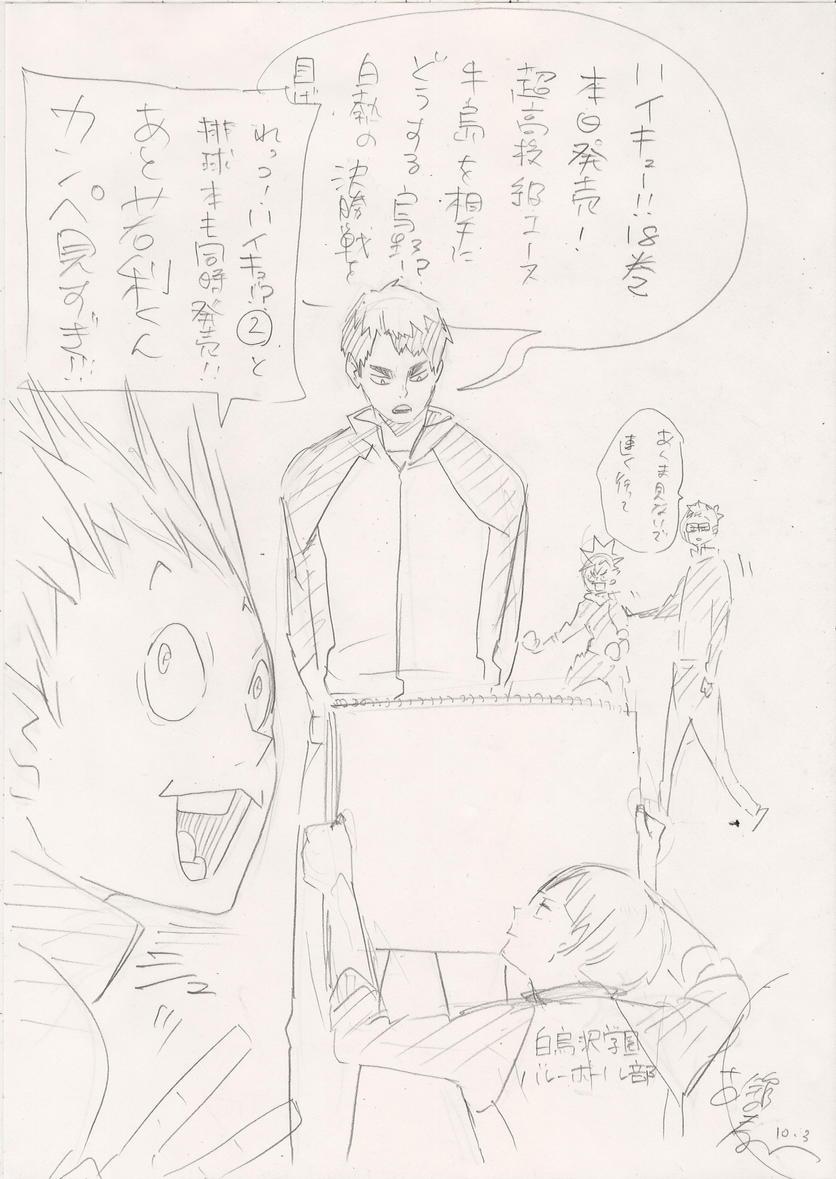 ハイキュー!!18巻
本日発売！
超高校級エース
牛島を相手に
どうする烏野!?
白熱の決勝戦を
目ば
れっつ！ハイキュー!?②と
排球本も同時発売!!
あと若利くん
カンペ見すぎ!!!
あくま見ないで
速く行って
白鳥沢学園
バレーボール部
10.3